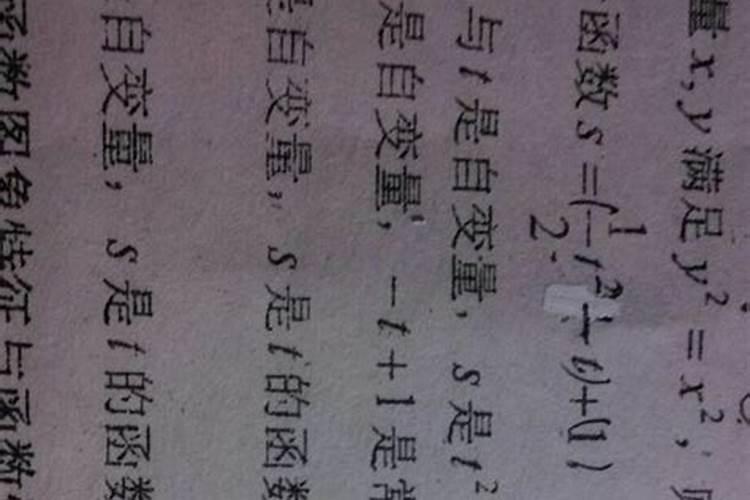 量x,y满足y² = x²,
函数s = (1/2 t² + t) + (1)
与t是自变量, s是t²
是自变量, -t+1是常
自变量, s是t的函数
自变量, s是t的函数
函数图象特征与函数